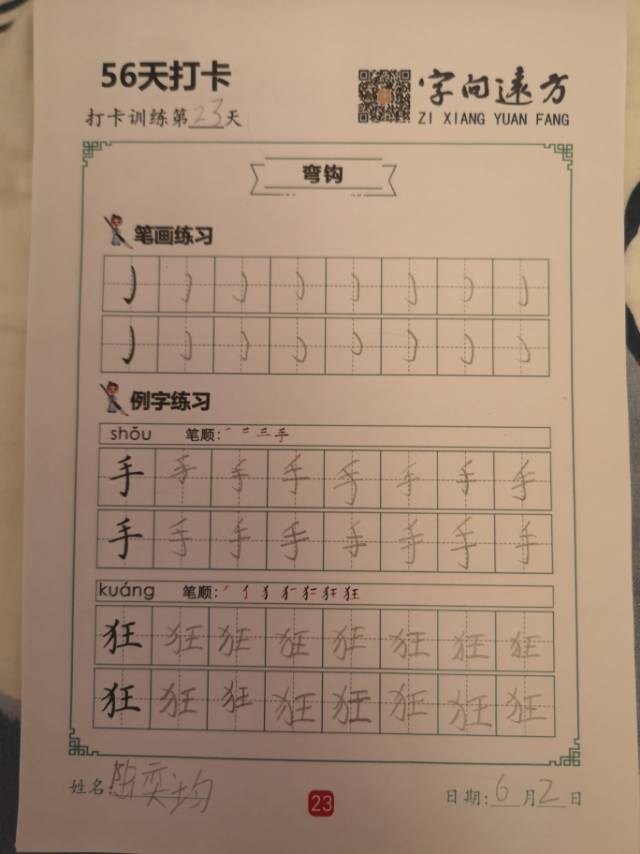 56天打卡
字向远方
打卡训练第23天
ZI XIANG YUAN FANG
弯钩
笔画练习
例字练习
shǒu 笔顺:
手 手 手 手 手 手 手 手
手 手 手 手 手 手 手 手
kuáng 笔顺:
狂 狂 狂 狂 狂 狂 狂 狂
狂 狂 狂 狂 狂 狂 狂 狂
姓名:陈奕均
日期:6月2日
23